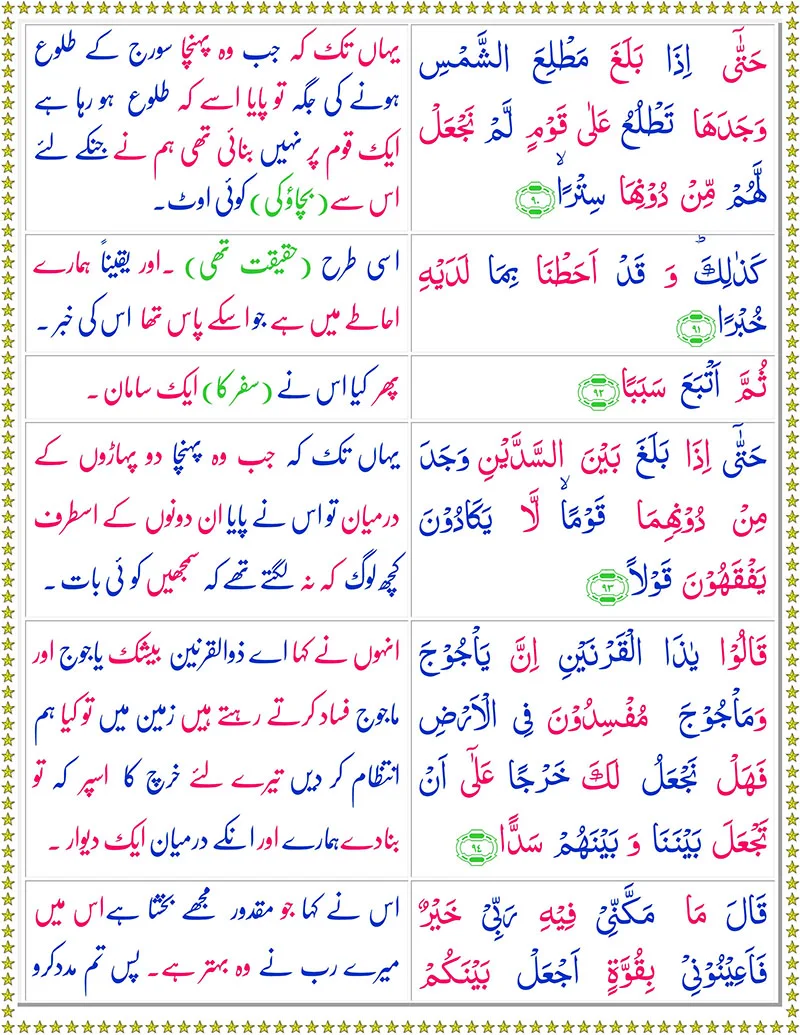 حَتّٰۤی اِذَا بَلَغَ مَطْلِعَ الشَّمْسِ
وَجَدَهَا تَطْلُعُ عَلٰی قَوْمٍ لَّمْ نَجْعَلْ
لَّهُمْ مِّنْ دُوْنِهَا سِتْرًا ۙ ﴿۹۰﴾
یہاں تک کہ جب وہ پہنچا سورج کے طلوع
ہونے کی جگہ تو پایا اسے کہ طلوع ہو رہا ہے
ایک قوم پر نہیں بنائی تھی ہم نے جنکے لئے
اس سے (بچاؤ کی) کوئی اوٹ۔
كَذٰلِكَ ؕ وَ قَدْ اَحَطْنَا بِمَا لَدَیْهِ
خُبْرًا ﴿۹۱﴾
اسی طرح (حقیقت تھی)۔ اور یقیناً ہمارے
احاطے میں ہے جو اسکے پاس تھا اس کی خبر۔
ثُمَّ اَتْبَعَ سَبَبًا ﴿۹۲﴾
پھر کیا اس نے (سفر کا) ایک سامان۔
حَتّٰۤی اِذَا بَلَغَ بَیْنَ السَّدَّیْنِ وَجَدَ
مِنْ دُوْنِهِمَا قَوْمًا ۙ لَّا یَكَادُوْنَ
یَفْقَهُوْنَ قَوْلاً ﴿۹۳﴾
یہاں تک کہ جب وہ پہنچا دو پہاڑوں کے
درمیان تو اس نے پایا ان دونوں کے اسطرف
کچھ لوگ کہ نہ لگتے تھے کہ سمجھیں کوئی بات۔
قَالُوْا یٰذَا الْقَرْنَیْنِ اِنَّ یَاْجُوْجَ
وَمَاْجُوْجَ مُفْسِدُوْنَ فِی الْاَرْضِ
فَهَلْ نَجْعَلُ لَكَ خَرْجًا عَلٰۤی اَنْ
تَجْعَلَ بَیْنَنَا وَ بَیْنَهُمْ سَدًّا ﴿۹۴﴾
انہوں نے کہا اے ذوالقرنین بیشک یاجوج اور
ماجوج فساد کرتے رہتے ہیں زمین میں تو کیا ہم
انتظام کر دیں تیرے لئے خرچ کا اسپر کہ تو
بنادے ہمارے اور انکے درمیان ایک دیوار۔
قَالَ مَا مَكَّنِّیْ فِیْهِ رَبِّیْ خَیْرٌ
فَاَعِیْنُوْنِیْ بِقُوَّةٍ اَجْعَلْ بَیْنَكُمْ
اس نے کہا جو مقدور مجھے بخشا ہے اس میں
میرے رب نے وہ بہتر ہے۔ پس تم مدد کرو